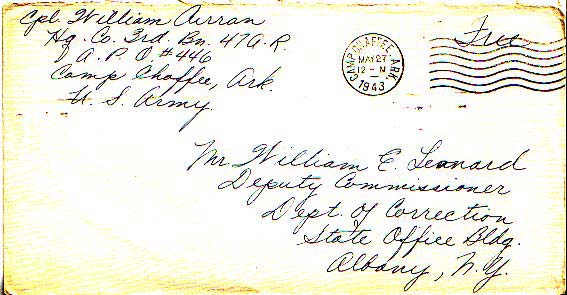 Cpl. William Curran
Hq. Co. 3rd. Bn. 47 A.R.
A.P.O. #446
Camp Chaffee, Ark.
U.S. Army
CAMP CHAFFEE, ARK.
MAY 27
12 - M
1943
Free
Mr. William E. Leonard
Deputy Commissioner
Dept. of Correction
State Office Bldg.
Albany, N.Y.